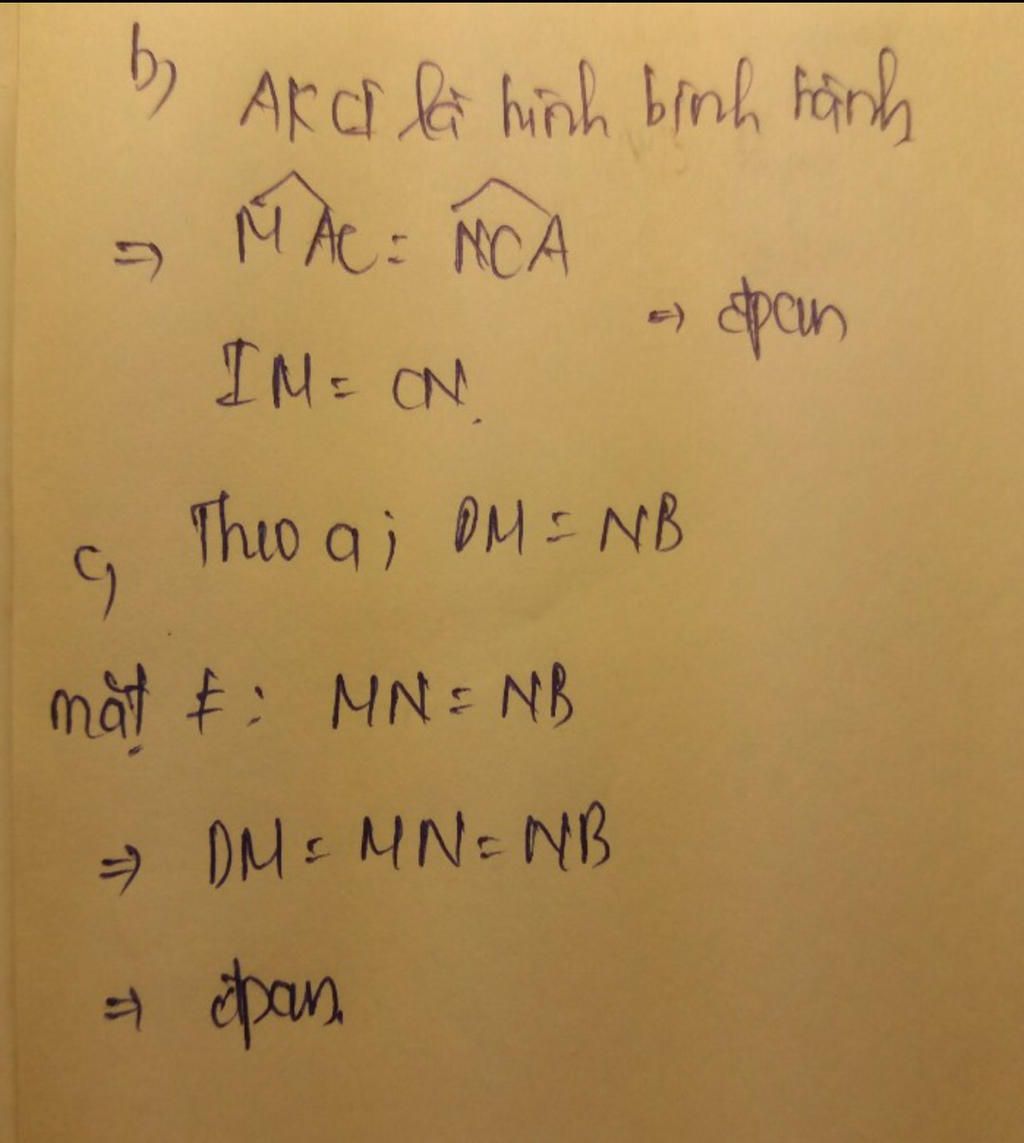 b) AKCI là hình bình hành
⇒ \widehat{MAC} = \widehat{NCA}
⇒ đpcm
IM = CN.
c) Theo a; DM = NB
mặt ≠: MN = NB
⇒ DM = MN = NB
⇒ đpcm.